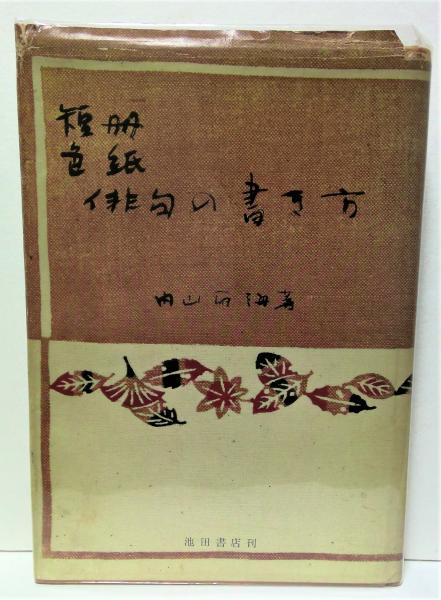 短册
色紙
俳句の書き方
内山 海著
池田書店刊